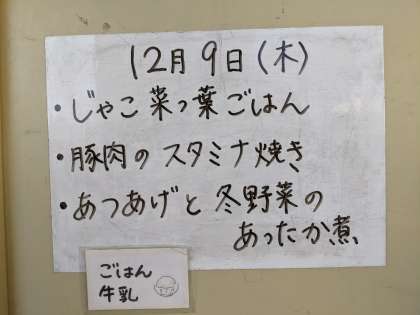 12月9日(木)
・じゃこ菜っ葉ごはん
・豚肉のスタミナ焼き
・あつあげと冬野菜の
あったか煮
ごはん
牛乳